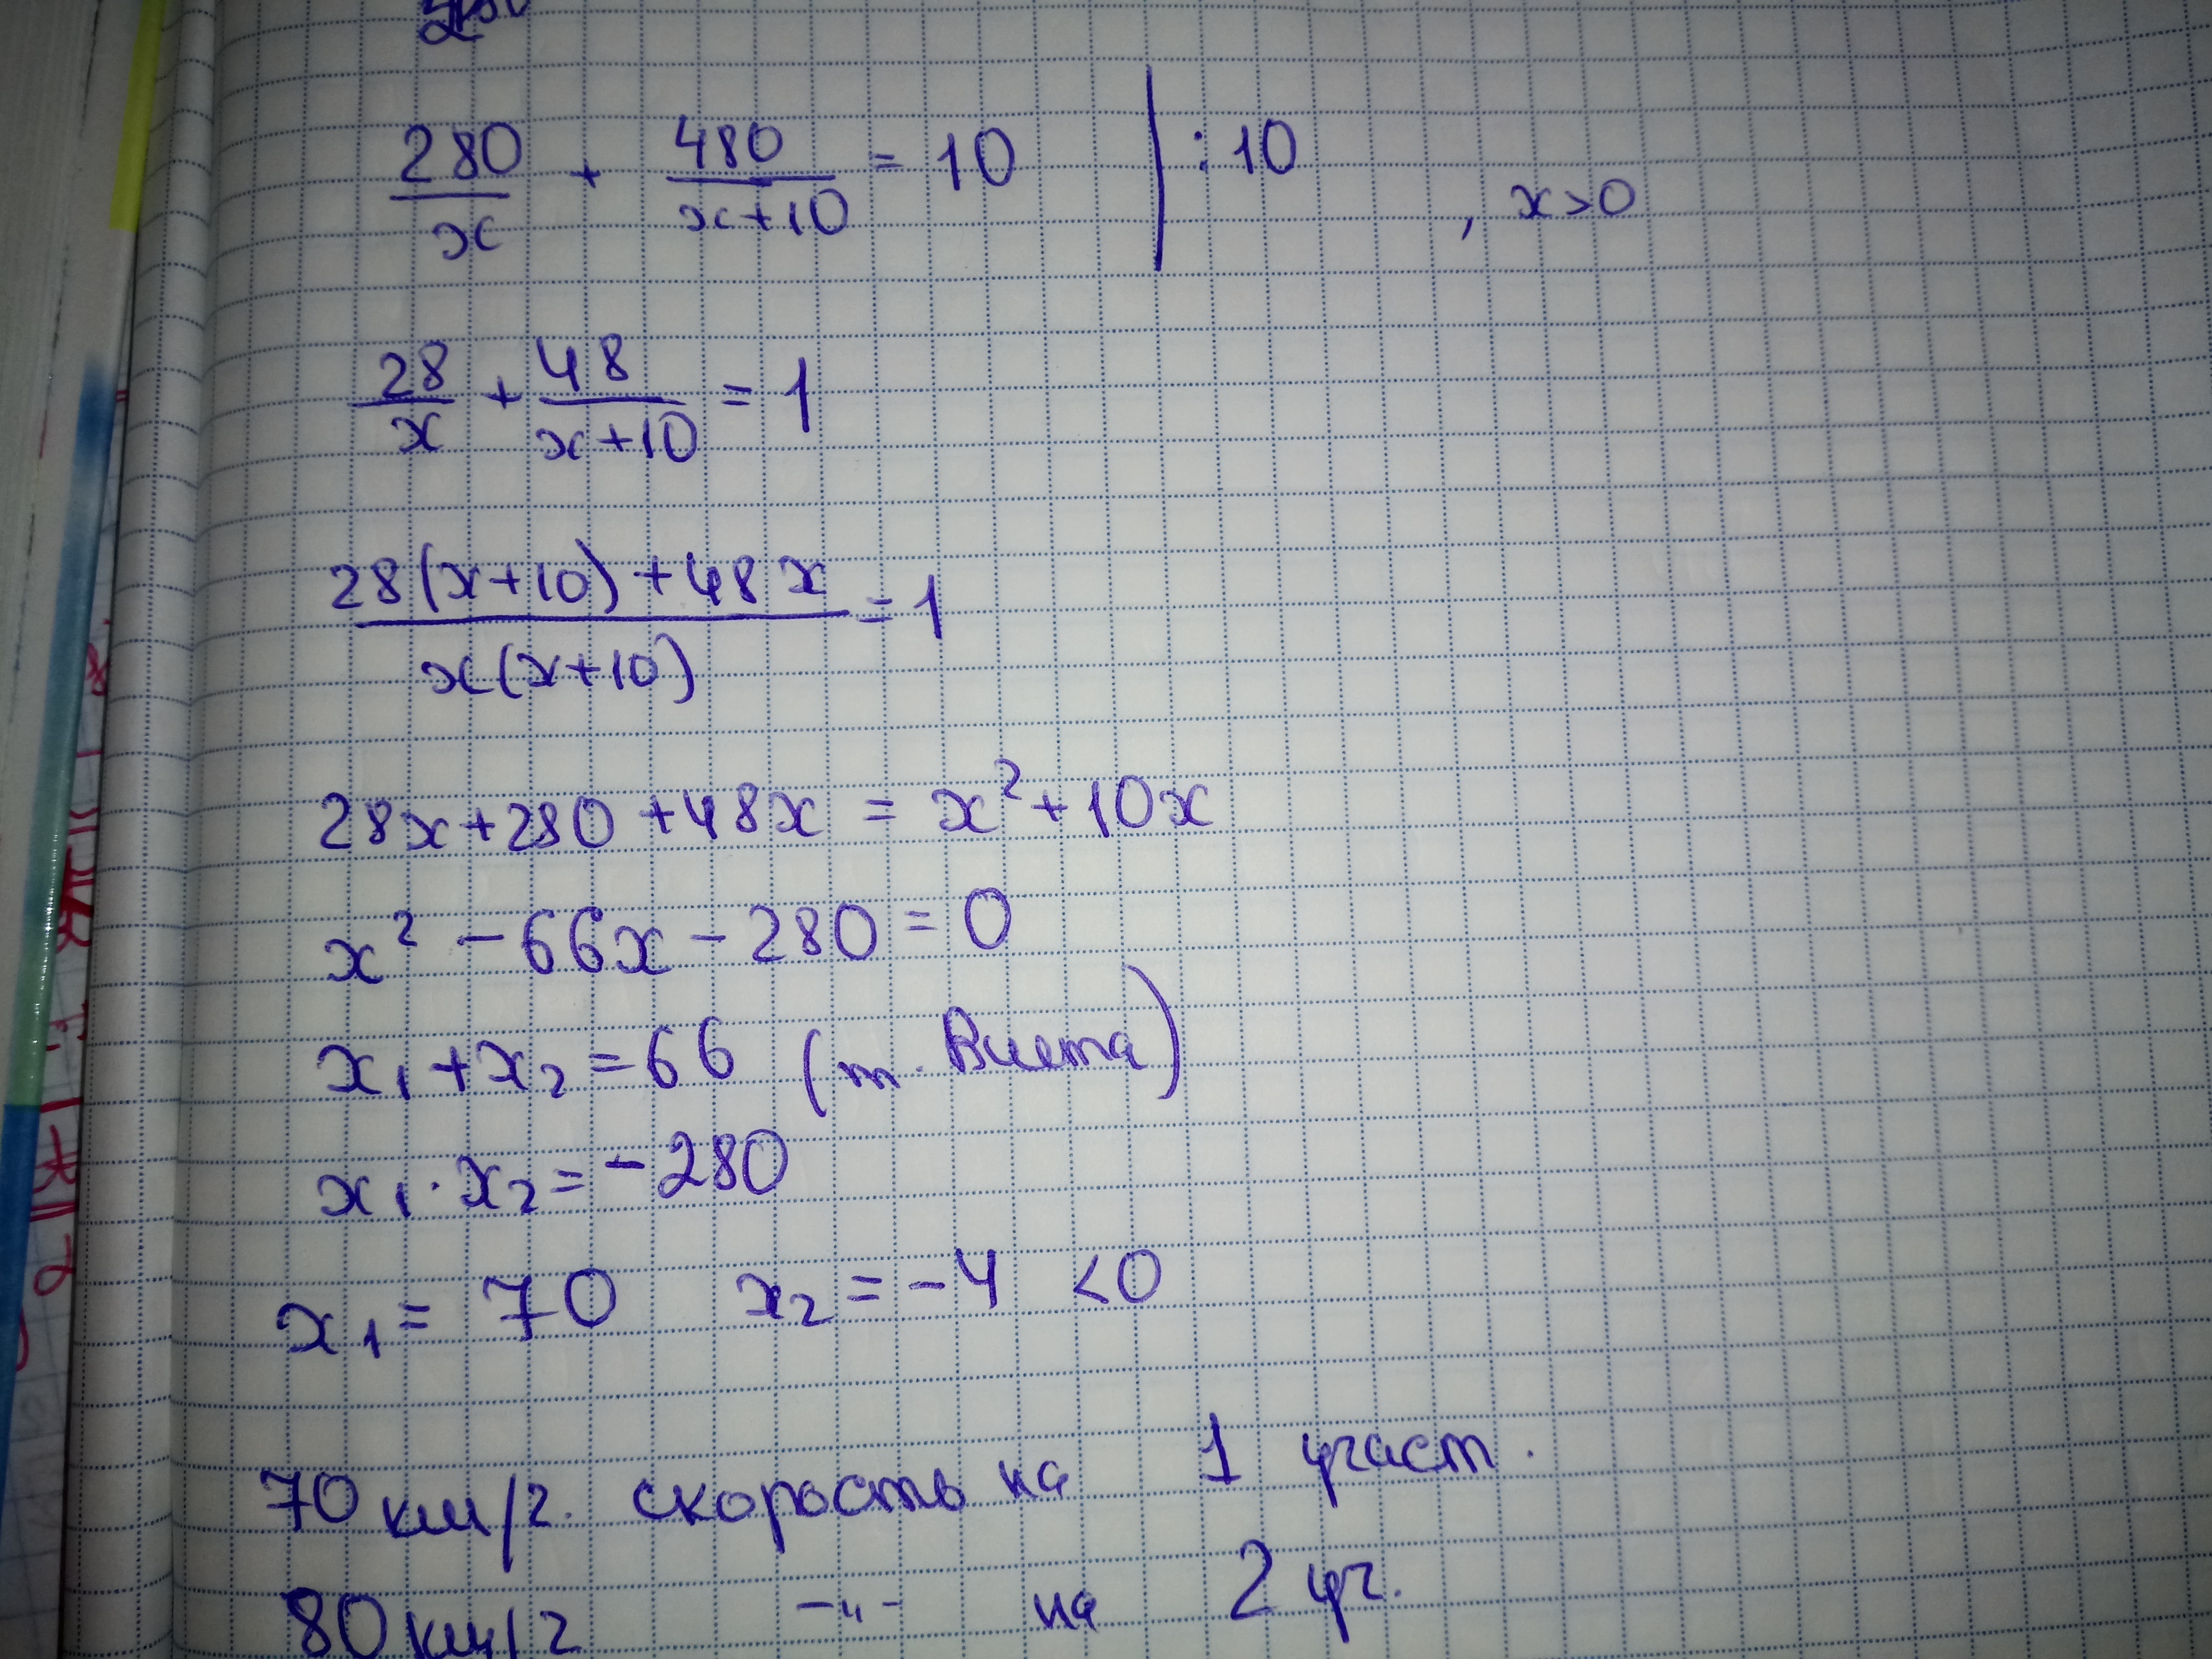 280/x + 480/(x+10) = 10 | :10 , x>0
28/x + 48/(x+10) = 1
(28(x+10)+48x)/(x(x+10)) = 1
28x+280+48x = x²+10x
x² - 66x - 280 = 0
x₁+x₂=66 (т. Виета)
x₁·x₂=-280
x₁= 70 x₂=-4 <0
70 км/г. скорость на 1 участ.
80 км/г -"- на 2 уч.